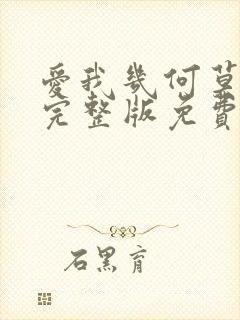 愛我幾何
完整版免費
石黑育